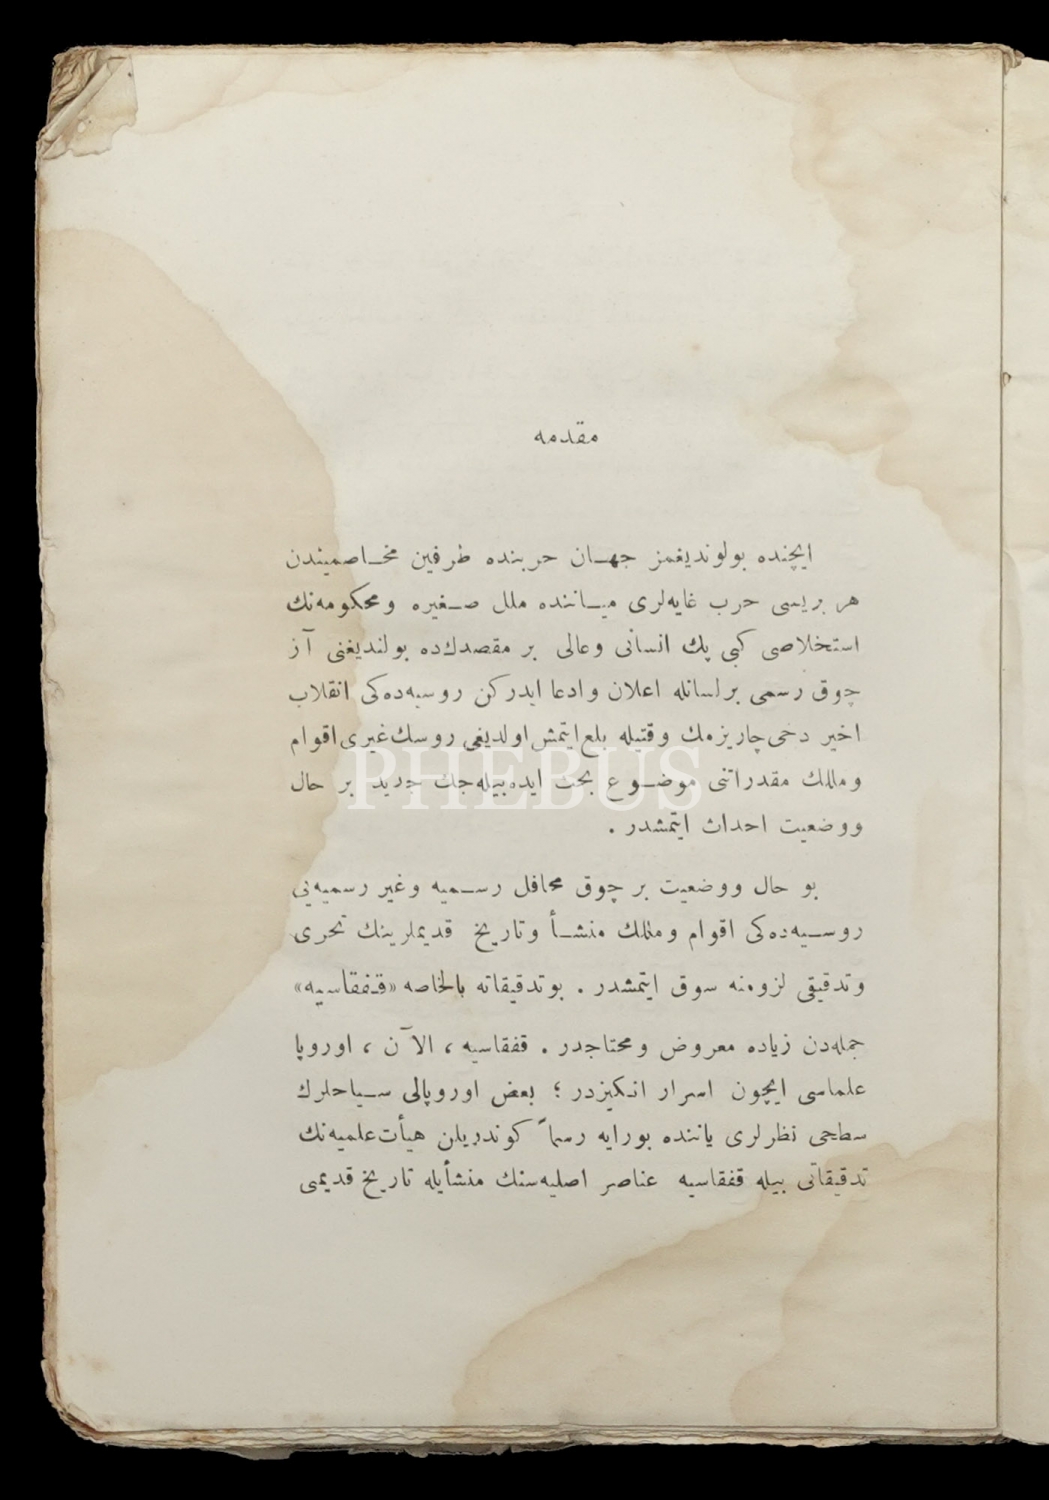 مقدمه
ايچنده بولونديغمز جهــان حربنده طرفين مخــاصميندن
هر بريسى حرب غايه‌لرى ميــاننده ملل صــغيره ومحكومه‌نك
استخلاصى كبى پك انسانى وعالى بر مقصدك‌ده بولنديغنى آز
چوق رسمى برلسانله اعلان وادعا ايدركن روسيه‌ده‌كى انقلاب
اخير دخى‌چاريزمك وقتيله بلع‌ايتمش‌اولديغى روسك‌غيرى‌اقوام
ومللك مقدراتنى موضــوع بحث ايده‌بيله‌جك جديد بر حال
ووضعيت احداث ايتمشدر .
بو حال ووضعيت بر چوق محافل رســميه وغير رسميه‌يى
روســيه‌ده‌كى اقوام ومللك منشــأ وتاريخ قديملرينك تحرى
وتدقيقى لزومنه سوق ايتمشدر . بوتدقيقاته بالخاصه «قـفقاسيه»
جمله‌دن زياده معروض ومحتاجدر . قفقاسيه ، الآن ، اوروپا
علماسى ايچون اسرار انـكيزدر ؛ بعض اوروپالى ســياحلرك
سطحى نظرلرى ياننده بورايه رسماً كوندريلن هيأت‌علميه‌نك
تدقيقاتى بيله قفقاسيه عناصر اصليه‌سنك منشأيله تاريخ قديمى
PHEBUS